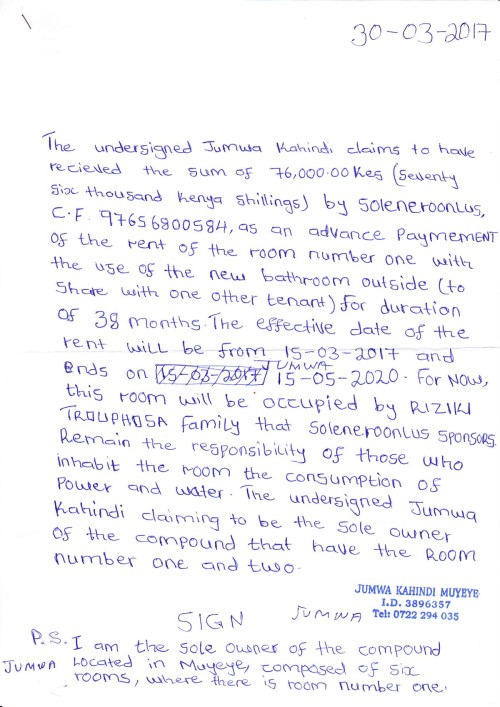 30-03-2017
The undersigned Jumwa Kahindi claims to have
recieved the sum of 76,000.00 Kes (seventy
six thousand Kenya shillings) by Soleneroonlus,
C.F. 97656800584, as an advance PaymeMENT
of the rent of the room number one with
the use of the new bathroom outside (to
share with one other tenant) for duration
of 38 months. The effective date of the
rent will be from 15-03-2017 and
JUMWA
ends on 15-03-2017 15-05-2020. For Now,
this room will be occupied by RIZIKI
TROUPHOSA family that Soleneroonlus SPONSORS.
Remain the responsibility of those who
inhabit the room the consumption of
Power and water. The undersigned Jumwa
Kahindi claiming to be the sole owner
of the compound that have the Room
number one and two.
JUMWA KAHINDI MUYEYE
I.D. 3896357
Tel: 0722 294 035
SIGN JUMWA
P.S. I am the sole owner of the compound
JUMWA Located in Muyeye, composed of six
rooms, where there is room number one.